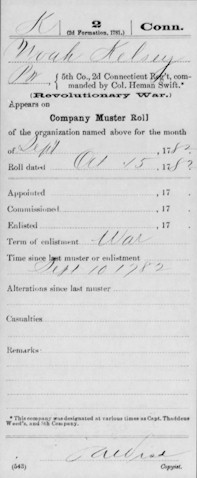 K 2 Conn.
(2d Formation, 1781.)
Noah Kelsey
Pvt { 5th Co., 2d Connecticut Reg't, commanded by Col. Heman Swift.*
(Revolutionary War.)
Appears on
Company Muster Roll
of the organization named above for the month
of Sept , 1782.
Roll dated Oct 15 , 1782.
Appointed , 17 .
Commissioned , 17 .
Enlisted , 17 .
Term of enlistment War
Time since last muster or enlistment
Sept 10 1782
Alterations since last muster
Casualties
Remarks:
* This company was designated at various times as Capt. Thaddeus
Weed's, and 8th Company.
(543) Copyist.